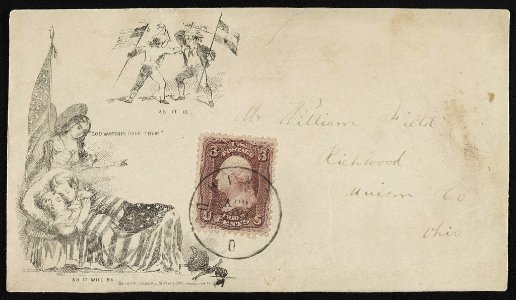 AS IT IS.
"GOD WATCHES OVER THEM."
AS IT WILL BE.
3 3
U.S. POSTAGE
U THREE CENTS S
O
Mr William Field
Richwood
Union Co
Ohio